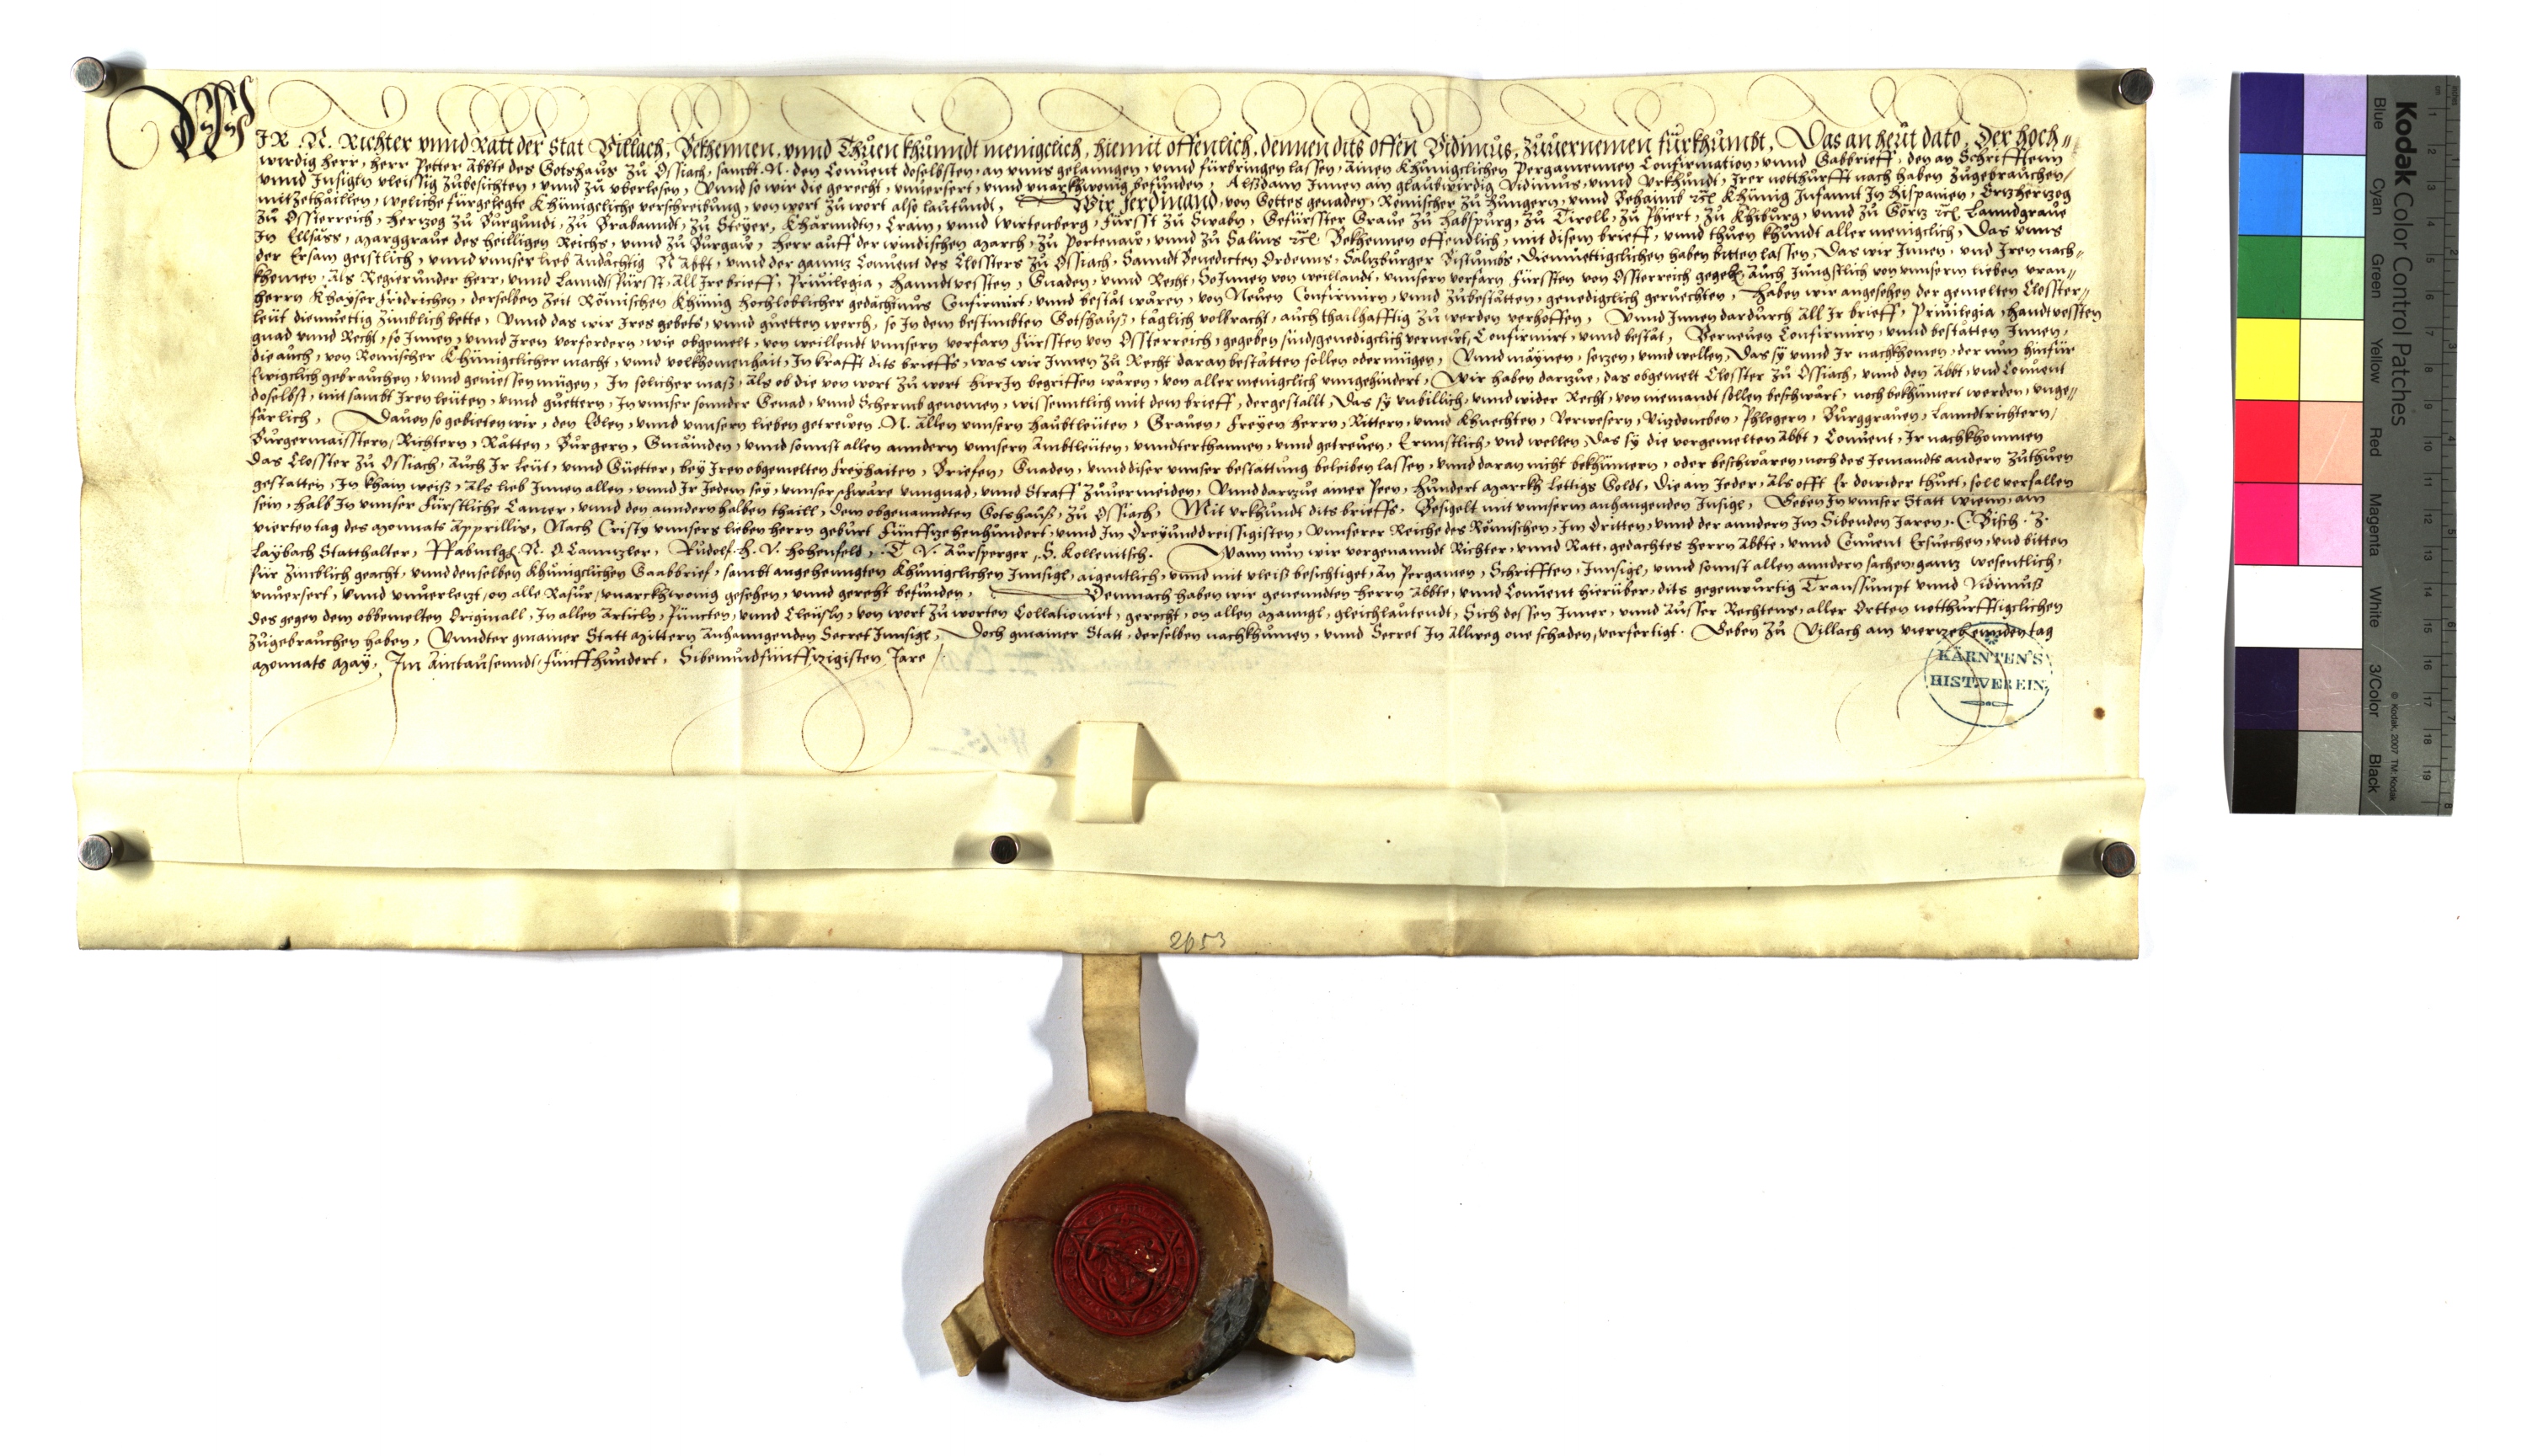 WIR .N. Richter vnnd Ratt der Stat Villach, Bekhennen, vnnd Thŭen khŭnndt menigclich, hiemit offenlich, dennen dits offen Vidimŭs, zŭŭernemen fŭrkhŭmbt, Das an heŭt dato, Der hoch-
wirdig herr, herr Petter Abbte des Gotshaŭs zŭ Ossiach, sambt .N. den Conŭent doselbsten, an vnns gelanngen, vnnd fŭrbringen lassen, Ainen Khŭnigclichen Pergamennen Confirmation, vnnd Gabbrieff, den an Schrifften
vnnd Insigln vleissig zŭbesichten, vnnd zŭ vberlesen, Vnnd so wir die gerecht, vnŭersert, vnnd vnarkhwonig befŭnden, Alßdann Innen ain glaubwirdig Vidimus, vnnd Vrkhŭndt, Irer notthŭrfft nach haben zŭgebraŭchen,
mitzethaillen, weliche fŭrgelegte Khŭnigcliche verschreibŭng, von wort zŭ wort also laŭtŭndt, Wir Ferdinand, von Gottes genaden, Römischer zŭ Hŭngern, vnnd Behaimb etc. Khŭnig Infannt In Hispanien, Ertzhertzog
zŭ Ossterreich, Hertzog zŭ Bŭrgŭndi, zŭ Brabanndt, zŭ Steyer, Khärnndtn, Crain, vnnd Wirtenberg, Fŭrsst zŭ Swabn, Gefŭrsster Graŭe zŭ Habspŭrg, zŭ Tiroll, zŭ Phiert, zŭ Khibŭrg, vnnd zŭ Görtz etc. Lanndgraŭe
In Ellsäss, Marggraŭe des heilligen Reichs, vnnd zŭ Bŭrgaŭ, Herr aŭff der windischen March, zŭ Portenaŭ, vnnd zŭ Salins etc. Bekhennen offendlich, mit disem brieff, vnnd thŭen khŭndt aller menigclich, Das vnns
der Ersam geistlich, vnnd vnnser lieb Andächtig N Abbt, vnnd der ganntz Conŭent des Clossters zŭ Ossiach, Sanndt Benedicten Ordenns, Saltzbŭrger Bistŭmbs, Diemŭettigclichen haben bitten lassen, Das wir Innen, vnnd Iren nach-
khomen, Als Regierŭnder herr, vnnd Lanndsfŭrsst, All Ire brieff, Priŭilegia, Hanndtvessten, Gnaden, vnnd Recht, So Innen von weillandt, vnnsern vorfarn Fŭrssten von Ossterreich gegebn, Aŭch Jŭngstlich von vnnserm lieben vran-
herrn Khayser Fridrichen, derselben zeit Römischen Khŭnig hochloblicher gedächtnŭs Confirmirt, vnnd bestät wären, von Neŭen Confirmirn, vnnd zŭbestätten, genedigclich gerŭechten, Haben wir angesehen der gemelten Closster-
leŭt diemŭettig zimblich bette, Vnnd das wir Ires gebets, vnnd gŭetten werch, so In dem bestimbten Gotshaŭß, täglich volbracht, aŭch thailhafftig zŭ werden verhoffen, Vnnd Innen dardŭrch All Ir brieff, Priŭilegia, Handtvessten
gnad vnnd Recht, so Innen, vnnd Iren vorfordern, wie obgemelt, von weillendt vnnsern vorfarn Fŭrssten von Ossterreich, gegeben sind, genedigclich verneŭrt, Confirmirt, vnnd bestät, Verneŭen Confirmirn, vnnd bestätten Innen,
die aŭch, von Romischer Khŭnigclicher macht, vnnd volkhomenhait, In krafft dits brieffs, was wir Innen zŭ Recht daran bestätten sollen oder mŭgen, Vnnd maynen, setzen, vnnd wellen, Das sy vnnd Ir nachkhomen, der nŭn hinfŭr
Ewigclich gebraŭchen, vnnd geniessen mŭgen, In solcher maß, Als ob die von wort zŭ wort hierIn begriffen wären, von aller menigclich vnngehindert, Wir haben dartzŭe, das obgemelt Closster zŭ Ossiach, vnnd den Abbt, vnd Conŭent
doselbst, mit sambt Iren leŭten, vnnd gŭettern, In vnnser sonnder Genad, vnnd Schermb genomen, wissenntlich mit dem brieff, dergestallt, Das sy vnbillich, vnnd wider Recht, von niemandt sollen beschwärt, noch bekhŭmert werden, vnge-
färlich, Daŭon so gebieten wir, den Edlen, vnnd vnnsern lieben getreŭen .N. Allen vnnsern Haŭbtleŭten, Graŭen, Freyen Herrn, Rittern, vnnd Khnechten, Verwesern, Vizdomben, Phlegern, Bŭrggraŭen, Lanndtrichtern,
Bŭrgermaisstern, Richtern, Rätten, Bŭrgern, Gmainden, vnnd sonnst allen anndern vnnsern Ambtleŭten, vnndterthannen, vnnd getreŭen, Ernnstlich, vnd wellen, Das sy die vorgemelten Abbt, Conŭent, Ir nachkhommen
das Closster zŭ Ossiach, Aŭch Ir leŭt, vnnd Gŭetter, bey Iren obgemelten Freyhaiten, Briefen, Gnaden, vnnd diser vnnser bestattŭng beleiben lassen, vnnd daran nicht bekhŭmern, oder beschwären, noch des Jemandts andern zŭthŭen
gestatten, In khain weiß, Als lieb Innen allen, vnnd Ir Jedem sey, vnnser schwäre vnngnad, vnnd Straff zŭŭermeiden, Vnnd dartzŭe ainer Peen, Hŭndert Marckh Lettigs Goldt, Die ain Jeder, Als offt Er dowider thŭet, soll verfallen
sein, halb In vnnser Fŭrstliche Camer, vnnd den anndern halben thaill, dem obgenanndten Gotshaŭß, zŭ Ossiach, Mit vrkhŭndt dits brieffs, Besigelt mit vnnserm anhangenden Insigl, Geben In vnnser Statt Wienn, am
vierten tag des Monnats Apprillis, Nach Cristy vnnsers lieben herrn gebŭrt Fŭnffzehenhŭndert, vnnd Im Dreyŭnddreissigisten, Vnnserer Reiche des Römischen, Im dritten, vnnd der anndern Im Sibenden Jaren, C. Bisch. z.
Laybach Statthalter, N. D. Canntzler, Rŭdolf. H. V. Hohenfeld, T. V. Aŭrsperger, S. Kollenitsch. Wann nŭn wir vorgenanndt Richter, vnnd Ratt, gedachtes herrn Abbte, vnnd Conŭent Ersŭechen, vnd bitten
fŭr zimblich geacht, vnnd denselben Khŭnigclichen Gaabbrief, sambt angehenngten Khŭnigclichen Innsigl, aigentlich, vnnd mit vleiß besichtiget, An Pergamen, Schrifften, Innsigl, vnnd sonnst allen anndern sachen, gantz wesentlich,
vnŭersert, vnnd vnŭerletzt, on alle Rasŭr, vnarckhwonig gesehen, vnnd gerecht befŭnden, Demnach haben wir genenndten Herrn Abbte, vnnd Conŭent hierŭber, dits gegenwŭrtig Transsŭmpt vnnd Vidimŭß
des gegen dem obbemelten Originall, In allen Articln, Pŭncten, vnnd Claŭsln, von wort zŭ worten Collationirt, gerecht, on allen Manngl, gleichlaŭtendt, Sich dessen Inner, vnnd Aŭsser Rechtens, aller Ortten notthŭrfftigclichen
zŭgebraŭchen haben, Vnndter gmainer Statt Mittern Anhanngenden Secret Innsigl, Doch gmainer Statt, derselben nachkhŭmen, vnnd Secret In Allweg one schaden, verfertigt. Geben zŭ Villach am viertzehennden tag
Monnats May, Im Aintaŭsenndt, fŭnffhŭndert, Sibenŭndfŭnfftzigisten Jare
KÄRNTEN'S
HIST.VEREIN
2653
Kodak Color Control Patches
Blue
Cyan
Green
Yellow
Red
Magenta
White
3/Color
Black
© Kodak, 2007 TM: Kodak